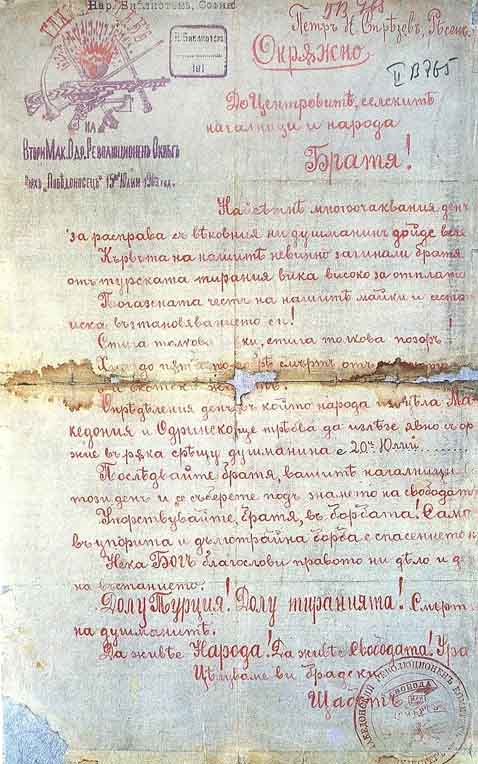 Нар. Библиотека, София
Н. Библиотека
Окрѫжно
II В 765
НА
Втори Мак. Одр. Революционенъ Окрѫгъ
"Побѣдоносецъ" 15 Юлий 1903 год.
До Центровитѣ, селскитѣ
началници и народа
Братя!
Най сетнѣ многоочаквания день
за расправа съ вѣковния ни душманинъ дойде
Кръвьта на нашитѣ невинно загинали братя
отъ турската тирания вика високо за отплата
Погазената честь на нашитѣ майки и сестри
иска възтановяванието си!
Стига толкова ки, стига толкова позоръ!
по смърть отъ
Опрѣдѣления день въ който народа изъ цѣла Ма-
кедония и Одринско ще трѣбва да излѣзе явно съ орѫ-
жие въ рѫка срѣщу душманина е 20и Юлий........
Послѣдвайте братя, вашитѣ началници
този день и се съберете подъ знамето на свободата
Упорствувайте, братя, въ борбата! Само
въ упорита и дълготрайна борба е спасението н
Нека Богъ благослови правото ни дѣло и де
на въстанието.
Долу Турция! Долу тиранията! Смърть
на душманитѣ.
Да живѣе Народа! Да живѣе Свободата! Ура
Цѣлуваме ви братски
Щабътъ
СВОБОДА